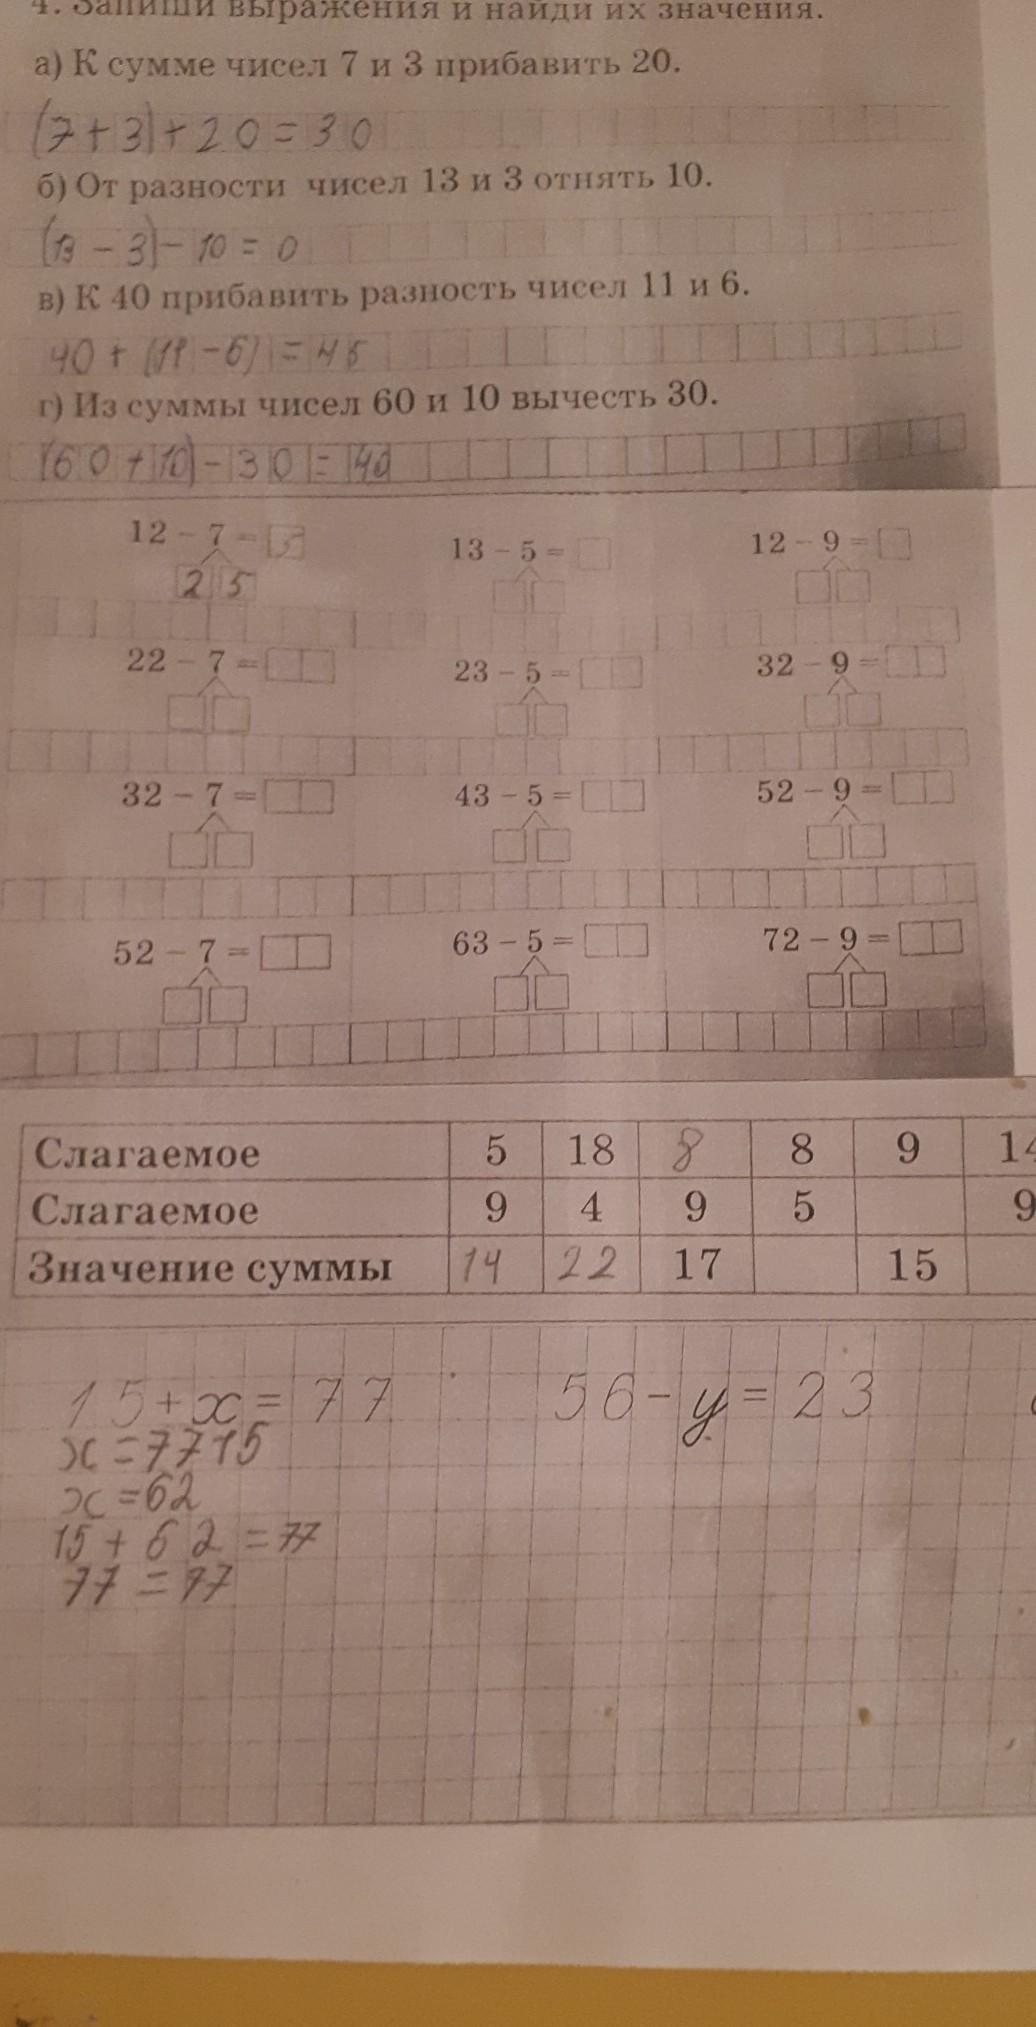 4. Запиши выражения и найди их значения.
а) К сумме чисел 7 и 3 прибавить 20.
(7+3)+20=30
б) От разности чисел 13 и 3 отнять 10.
(13-3)-10=0
в) К 40 прибавить разность чисел 11 и 6.
40+(11-6)=45
г) Из суммы чисел 60 и 10 вычесть 30.
(60+10)-30=40
12 - 7 = 5 13 - 5 = 12 - 9 =
2 5
22 - 7 = 23 - 5 = 32 - 9 =
32 - 7 = 43 - 5 = 52 - 9 =
52 - 7 = 63 - 5 = 72 - 9 =
Слагаемое 5 18 8 8 9 14
Слагаемое 9 4 9 5 9
Значение суммы 14 22 17 15
15+x=77 56-y=23
x=7715
x=62
15+62=77
77=77